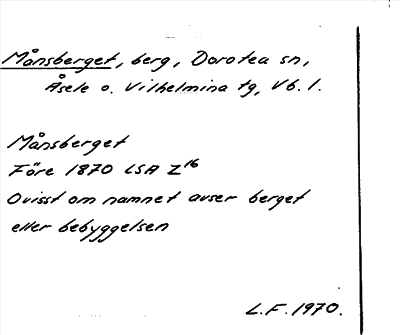 Månsberget, berg, Dorotea sn,
Åsele o. Vilhelmina tg, Vb. l.
Månsberget
Före 1870 LSA Z16
Ovisst om namnet avser berget
eller bebyggelsen
L.F. 1970.